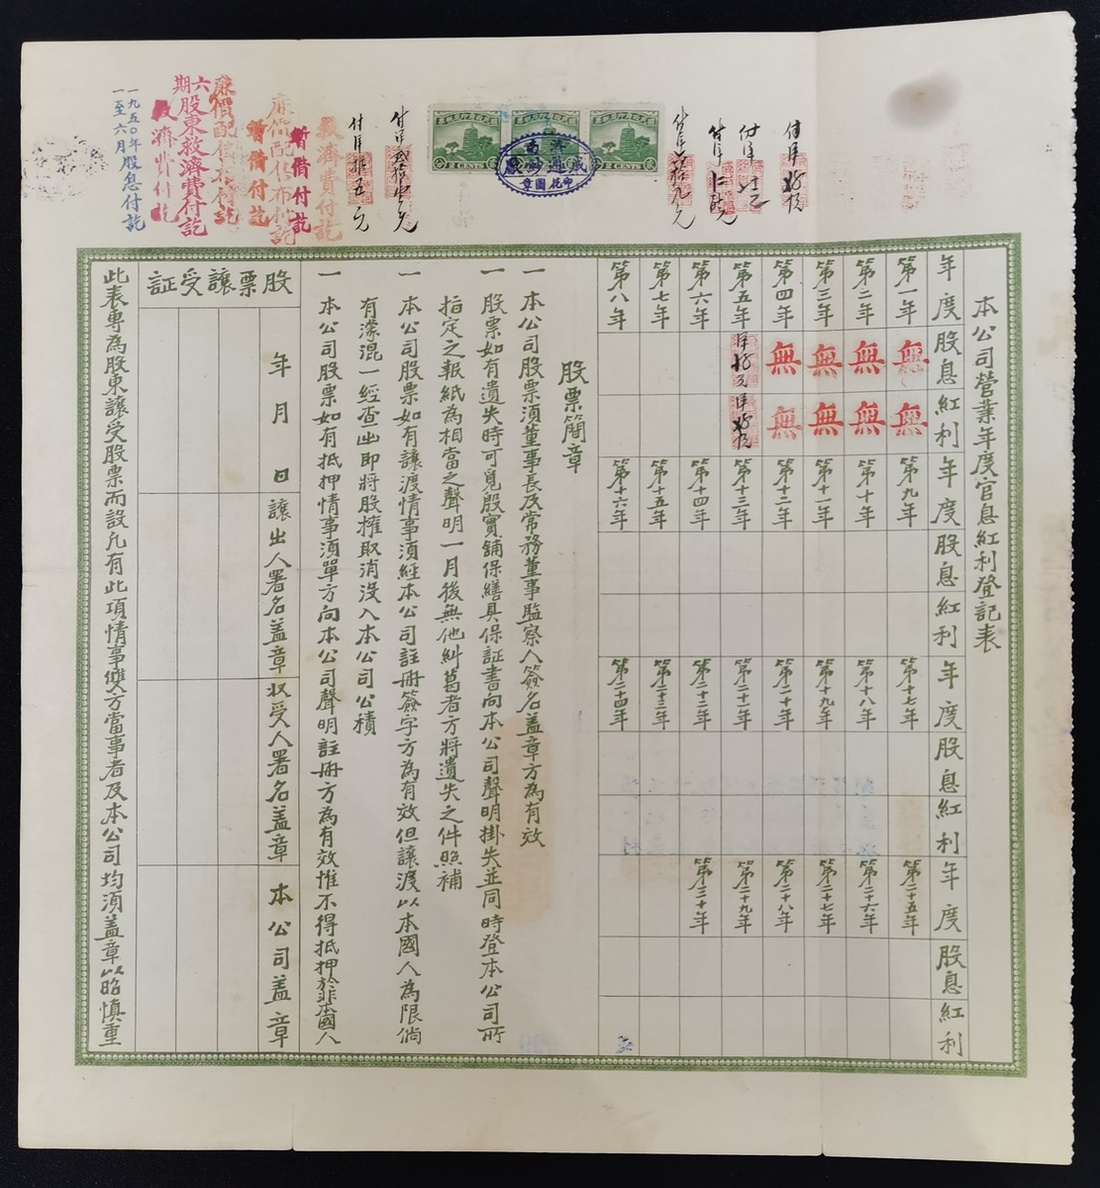 本公司營業年度官息紅利登記表
年度 股息 紅利 年度 股息 紅利 年度 股息 紅利 年度 股息 紅利
第一年 無 無 第九年 第十七年 第二十五年
第二年 無 無 第十年 第十八年 第二十六年
第三年 無 無 第十一年 第十九年 第二十七年
第四年 無 無 第十二年 第二十年 第二十八年
第五年 第十三年 第二十一年 第二十九年
第六年 第十四年 第二十二年 第三十年
第七年 第十五年 第二十三年
第八年 第十六年 第二十四年
股票簡章
一 本公司股票須董事長及常務董事監察人簽名蓋章方為有效
一 股票如有遺失時可覓殷實鋪保繕具保証書向本公司聲明掛失並同時登本公司所
指定之報紙為相當之聲明一月後無他糾葛者方將遺失之件照補
一 本公司股票如有讓渡情事須經本公司註冊簽字方為有效但讓渡以本國人為限倘
有濛混一經查出即將股權取消沒入本公司公積
一 本公司股票如有抵押情事須單方向本公司聲明註冊方為有效惟不得抵押於非本國人
股票讓受証
年 月 日 讓出人署名蓋章 收受人署名蓋章 本公司蓋章
此表專為股東讓受股票而設凡有此項情事雙方當事者及本公司均須蓋章以昭慎重
2 CENTS 2 CENTS
濟南
成通紗廠
印花圖章
救濟費付訖
暫借付訖
暫借付訖
六期
股東救濟費付訖
救濟費付訖
一九五〇年
一至六月股息付訖